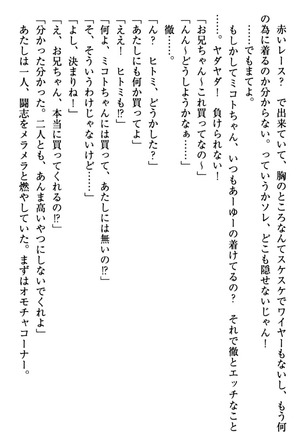 赤いレース？　で出来ていて、胸のところなんてスケスケでワイヤーもないし、もう何
の為に着るのか分からない。っていうかソレ、どこも隠せないじゃん！
……でもまてよ。
もしかしてミコトちゃん、いつもあーゆーの着けてるの？　それで徹とエッチなこと
を……。ヤダヤダ！　負けられない！
「お兄ちゃん～これ買ってなの～」
「んん～どうしようかなぁ～……」
徹……。
「ん？　ヒトミ、どうかした？」
「あたしにも何か買ってよ」
「ええ！　ヒトミも⁉」
「何よ、ミコトちゃんには買って、あたしには無いの⁉」
「そ、そういうわけじゃないけど……」
「よし、決まりね！」
「え、お兄ちゃん、本当に買ってくれるの⁉」
「分かった分かった。二人とも、あんま高いやつにしないでくれよ」
あたしは一人、闘志をメラメラと燃やしていた。まずはオモチャコーナー。